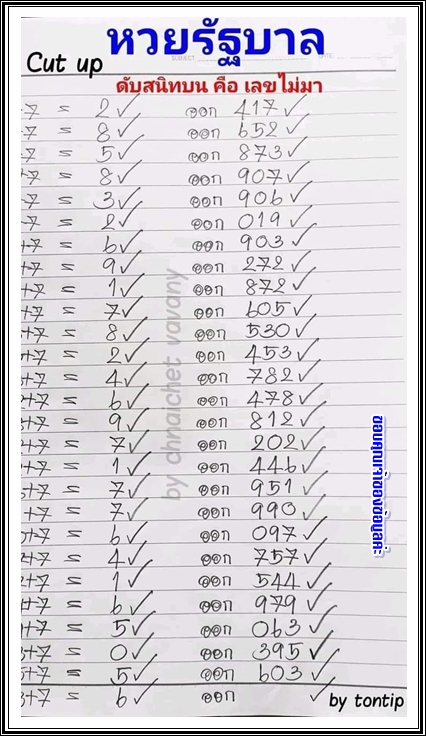 หวยรัฐบาล
Cut up
ดับสนิทบน คือ เลขไม่มา
7 = 2✓ ออก 417✓
7 = 8✓ ออก 652✓
7 = 5✓ ออก 873✓
+7 = 8✓ ออก 907✓
7 = 3✓ ออก 906✓
7 = 2✓ ออก 019✓
+7 = 6✓ ออก 903✓
+7 = 9✓ ออก 272✓
+7 = 1✓ ออก 872✓
+7 = 7✓ ออก 605✓
+7 = 8✓ ออก 530✓
+7 = 2✓ ออก 453✓
+7 = 4✓ ออก 782✓
+7 = 6✓ ออก 478✓
+7 = 9✓ ออก 812✓
+7 = 7✓ ออก 202✓
+7 = 1✓ ออก 446✓
+7 = 7✓ ออก 951✓
+7 = 7✓ ออก 990✓
+7 = 6✓ ออก 097✓
+7 = 4✓ ออก 757✓
+7 = 1✓ ออก 544✓
+7 = 6✓ ออก 979✓
+7 = 5✓ ออก 063✓
+7 = 0✓ ออก 395✓
+7 = 5✓ ออก 603✓
3+7 = 6✓ ออก ✓
by chraichet vavany
ขอบคุณเจ้าของข้อมูลค่ะ
by tontip